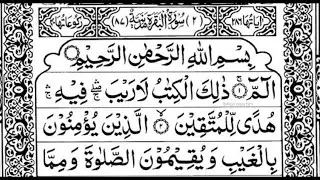 اٰیَاتُهَا ٢٨٦ (٢) سُوْرَةُ الْبَقَرَةِ مَدَنِیَّةٌ (٨٧) رُكُوْعَاتُهَا
بِسْمِ اللّٰهِ الرَّحْمٰنِ الرَّحِیْمِ
الٓمّٓ ۚ﴿١﴾ ذٰلِكَ الْكِتٰبُ لَا رَیْبَ ۛۚ فِیْهِ ۛۚ
هُدًی لِّلْمُتَّقِیْنَ ﴿٢﴾ الَّذِیْنَ یُؤْمِنُوْنَ
بِالْغَیْبِ وَ یُقِیْمُوْنَ الصَّلٰوةَ وَ مِمَّا